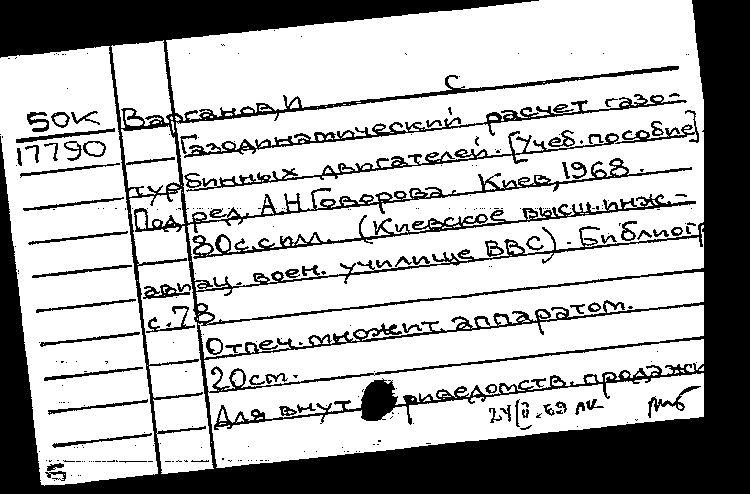 С
50К Варганов, И
17790 Газодинамический расчет газо=
турбинных двигателей. [Учеб. пособие]
Под ред. А.Н. Говорова. Киев, 1968.
80с. с илл. (Киевское высш. инж.=
авиац. воен. училище ВВС). Библиогр
с. 78.
Отпеч. множит. аппаратом.
20 см.
Для внут риведомств. продажи